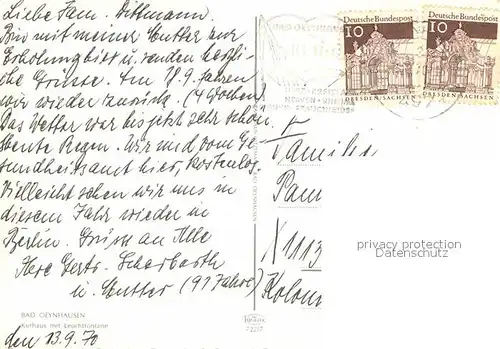 Liebe Fam. Dittmann.
Bin mit meiner Mutter zur
Erholung hier u. senden herzli-
che Grüsse. Am 18.9. fahren
wir wieder zurück. (4 Wochen)
Das Wetter war bis jetzt sehr schön
Heute Regen. Wir sind vom Ge-
sundheitsamt hier, kostenlos.
Vielleicht sehen wir uns in
diesem Jahr wieder in
Berlin. Gruss an Alle
Ihre Gertr.
u. Mutter (91 Jahre)
BAD OEYNHAUSEN
Kurhaus mit Leuchtfontäne
den 13.9.70
Deutsche Bundespost
10
DRESDEN/SACHSEN
Deutsche Bundespost
10
DRESDEN/SACHSEN
Familie
X 1113
privacy protection
Datenschutz